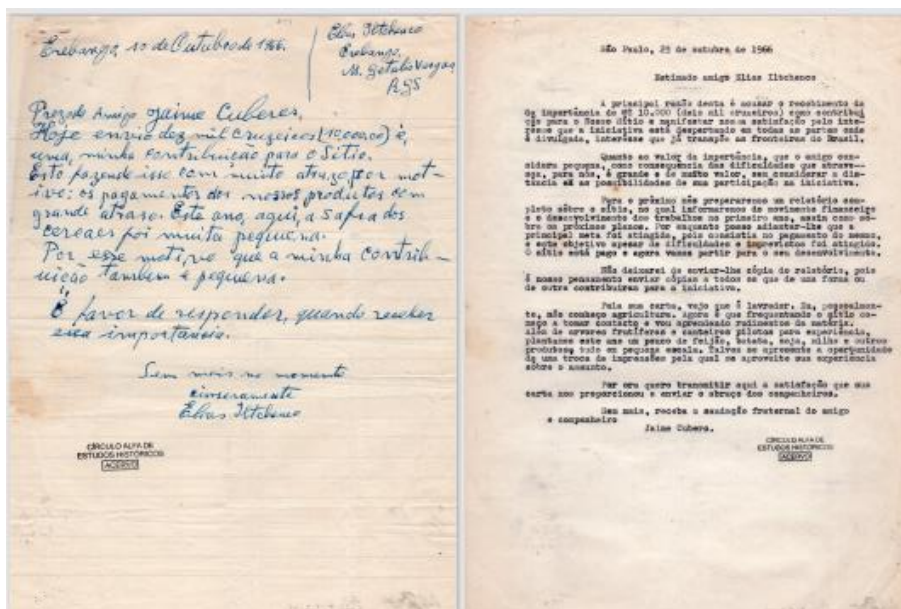 Erebango, 10 de Outubro de 1966.
Elias Iltchenco
Erebango,
M. Getulio Vargas,
RGS
Prezado Amigo Jaime Cuberos,
Hoje envio dez mil cruzeiros (10.000.00) é,
uma, minha contribuição para o Sitio.
Esto fazendo isso com muito atrazo por mot-
ivo: os pagamentos dos nossos productos com
grande atraso. Este ano, aqui, a safra dos
cereaes foi muita pequena.
Por esse motivo que a minha contrib-
uição tambem é pequena.
É favor de responder, quando receber
esca importancia.
Sem mais no momento
cinseramente
Elias Iltchenco
CÍRCULO ALFA DE
ESTUDOS HISTÓRICOS
ACERVO
São Paulo, 25 de outubro de 1966
Estimado amigo Elias Iltchenco
A principal razão desta é acusar o recebimento da
importância de 10.000 (dois mil cruzeiros) como contribui
ção para o Nosso Sítio e manifestar nossa satisfação pelo inte-
resse que a iniciativa está despertando em todas as partes onde
é divulgada, interesse que já transpõe as fronteiras do Brasil.
Quanto ao valor da importância, que o amigo con-
sidera pequena, como consequência das dificuldades que atraves-
sa, para nós, é grande e de muito valor, sem considerar a dis-
tância e as possibilidades de sua participação na iniciativa.
Para o próximo mês prepararemos um relatório com-
pleto sôbre o sítio, no qual informaremos do movimento financeiro
e desenvolvimento dos trabalhos no primeiro ano, assim como so-
bre os próximos planos. Por enquanto posso adiantar-lhe que a
principal meta foi atingida, pois consistia no pagamento do mesmo,
e este objetivo apesar de dificuldades e imprevistos foi atingido.
O sítio está pago e agora vamos partir para o seu desenvolvimento.
Não deixarei de enviar-lhe cópia do relatório, pois
é nosso pensamento enviar cópias a todos os que de uma forma ou
de outra contribuiram para a iniciativa.
Pela sua carta, vejo que é lavrador. Eu, pessoalmen-
te, não conheço agricultura. Agora é que frequentando o sítio co-
meço a tomar contacto e vou aprendendo rudimentos da matéria.
Além de arvores frutíferas e canteiros pilotos para experiência,
plantamos este ano um pouco de feijão, batata, soja, milho e outros
produtos, tudo em pequena escala. Talvez se apresente a oportunidade
de uma troca de impressões pela qual se aproveite sua experiência
sobre o assunto.
Por ora quero transmitir aqui a satisfação que sua
carta nos proporcionou e enviar o abraço dos companheiros.
Sem mais, receba a saudação fraternal do amigo
e companheiro
Jaime Cubero.
CÍRCULO ALFA DE
ESTUDOS HISTÓRICOS
ACERVO